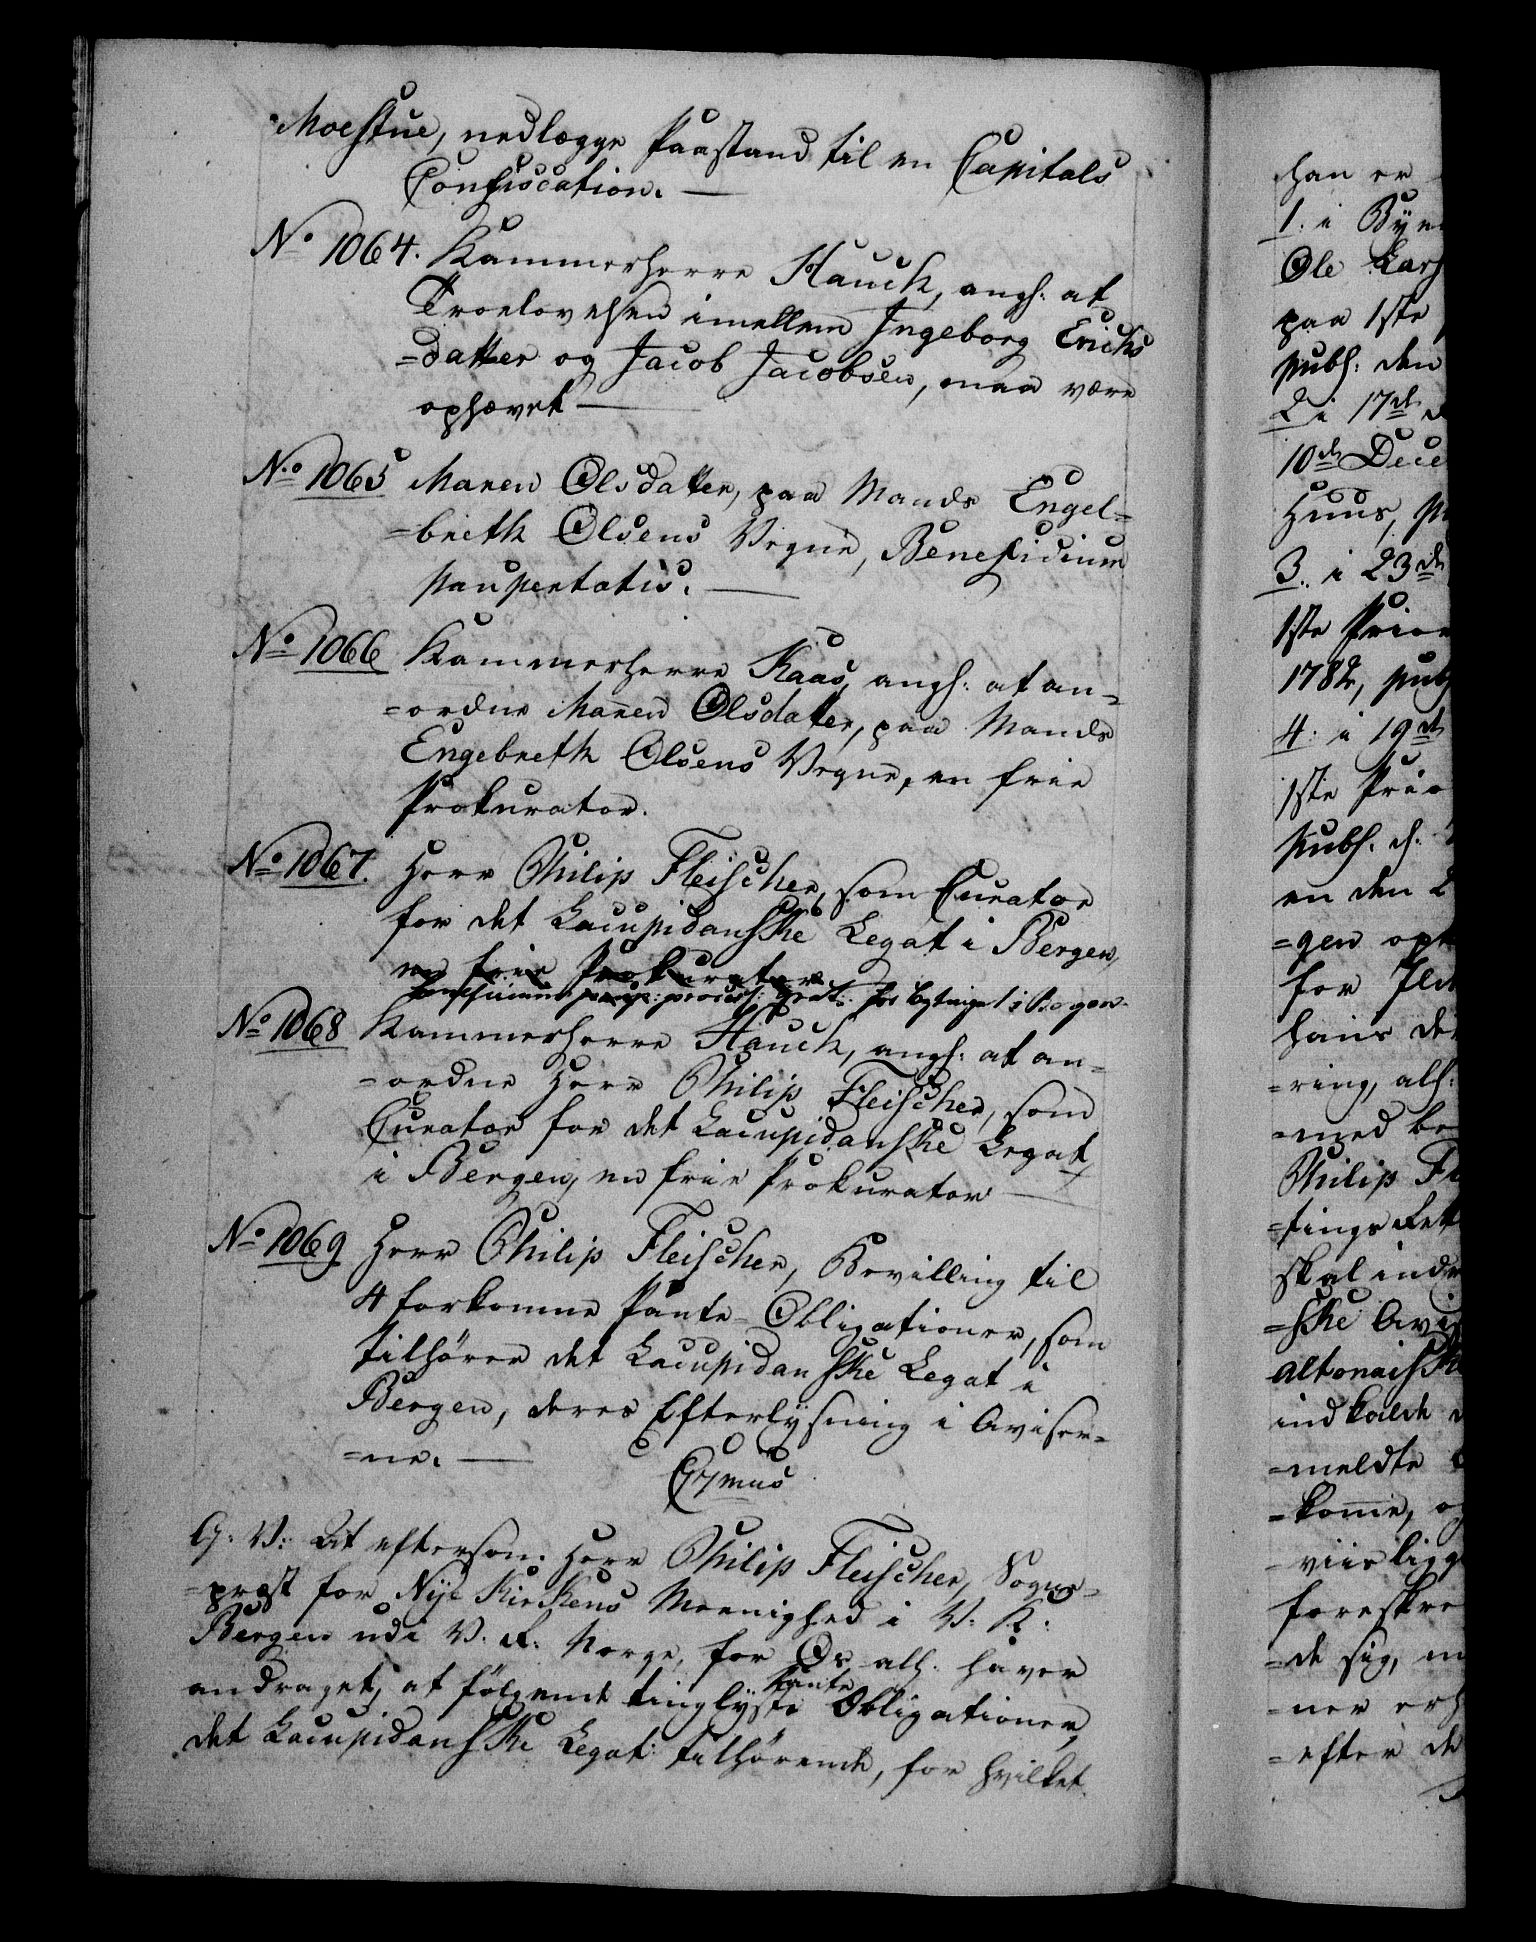 Moestue, nedlægge Paastand til en Capitals
Confiscation. —
No 1064. Kammerherre Hauch, angl: at
Troelovelsen imellem Ingeborg Erichs
=datter og Jacob Jacobsen, maa være
ophævet —
No. 1065 Maren Olsdatter, paa Mands Engel=
=breth Olsens Vegne, Beneficium
paupertatis. —
No 1066 Kammerherre Kaas, angl: at an=
=ordne Maren Olsdatter, paa Mands
Engebreth Olsens Vegne, en frie
Prokurator.
No 1067. Herr Philip Fleischer, som Curator
for det Lacupidanske Legat i Bergen,
en frie Prokurator
Beneficium process: grat: for Bytinget i Bergen.
No 1068 Kammerherre Hauch, angl: at an=
=ordne Herr Philip Fleischer, som
Curator for det Lacupidanske Legat
i Bergen, en frie Prokurator —
No 1069 Herr Philip Fleischer, Bevilling til
4 forkomne Pante-Obligationer, som
tilhører det Lacupidanske Legat i
Bergen, deres Efterlysning i Aviser=
=ne. —
G: V: At eftersom Herr Philip Fleischer, Sogne=
=præst for Nye Kirkens Meenighed i V: K:
Bergen udi V. R. Norge, for Os all: haver
andraget, at følgende tinglyste Pante Obligationer,
det Lacupidanske Legat tilhørende, for hvilket
han er
1. i Bÿe
Ole Lars
paa 1ste
publ: den
2 i 17de
10de Dece
Huus, p
3. i 23de
1ste Prior
1782, publ
4. i 19de
1ste Prio
publ. d.
en den 2
=gen op
for
hans de
=ring, all:
=med be
Philip Fl
=tings Rett
skal ind
=ske Avi
altonaiske
indkalde
=meldte
=komme, o
viisligg
foreskre
=de sig, m
ner erh
=efter de